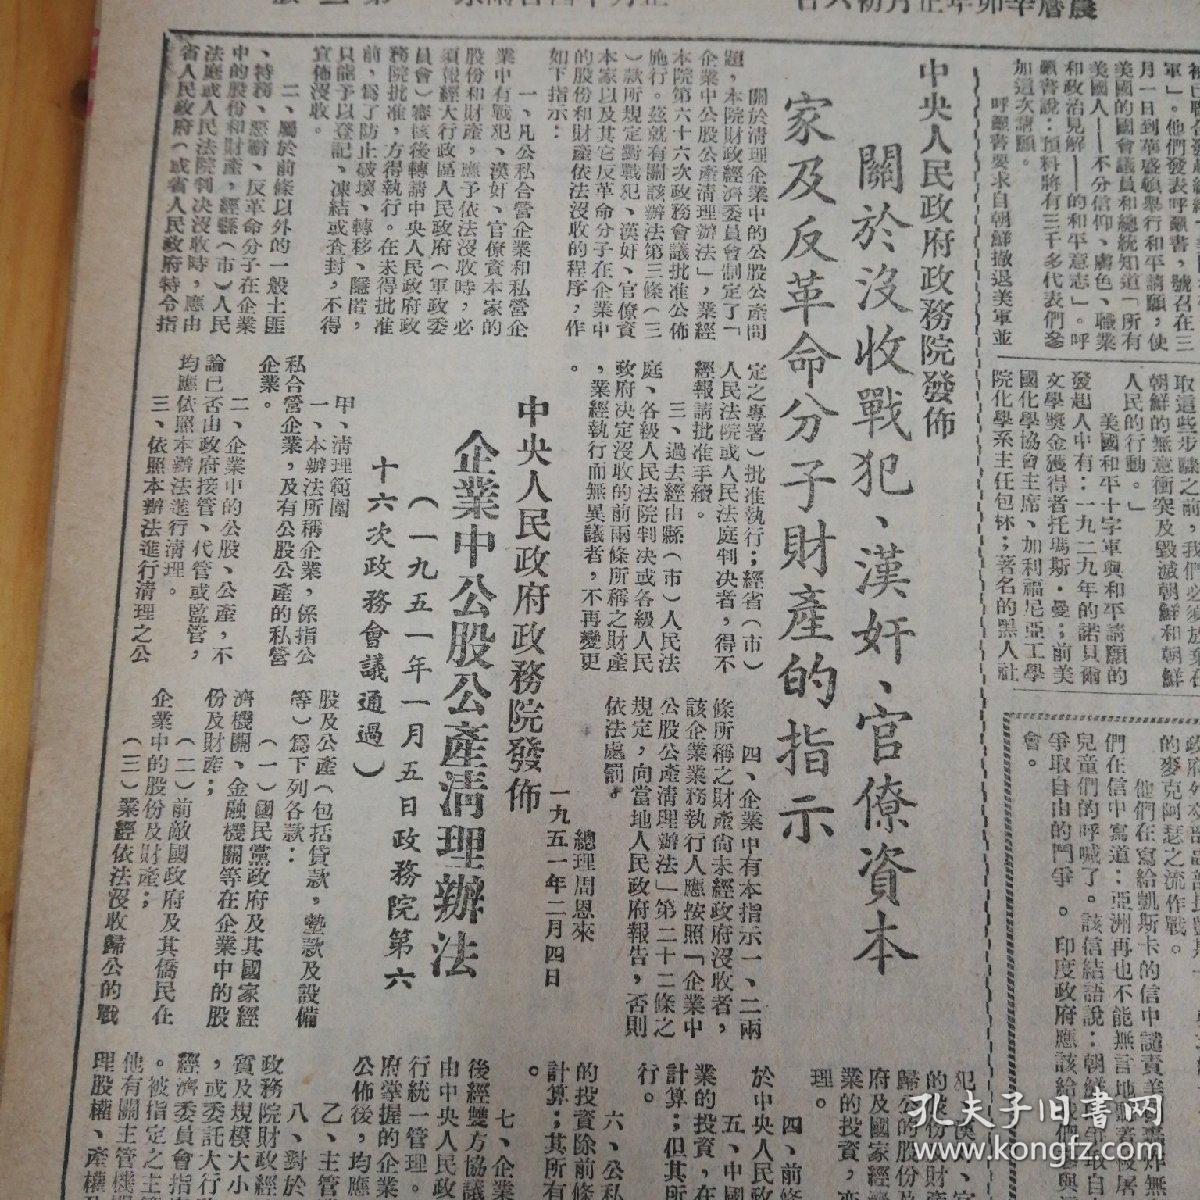 中央人民政府政務院發佈
關於沒收戰犯、漢奸、官僚資本
家及反革命分子財產的指示
關於清理企業中的公股公產問
題，本院財政經濟委員會制定了「
企業中公股公產清理辦法」，業經
本院第六十六次政務會議批准公佈
施行。茲就有關該辦法第三條（三
）款所規定對戰犯、漢奸、官僚資
本家以及其它反革命分子在企業中
的股份和財產依法沒收的程序，作
如下指示：
一、凡公私合營企業和私營企
業中有戰犯、漢奸、官僚資本家的
股份和財產，應予依法沒收時，必
須報經大行政區人民政府（軍政委
員會）審核後轉請中央人民政府政
務院批准，方得執行。在未得批准
前，爲了防止破壞、轉移、隱匿，
只能予以登記、凍結或查封，不得
宣佈沒收。
二、屬於前條以外的一般土匪
、特務、惡霸、反革命分子在企業
中的股份和財產，經縣（市）人民
法庭或人民法院判决沒收時，應由
省人民政府（或省人民政府特令指
定之專署）批准執行；經省（市）
人民法院或人民法庭判决者，得不
經報請批准手續。
三、過去經由縣（市）人民法
庭、各級人民法院判决或各級人民
政府决定沒收的前兩條所稱之財產
，業經執行而無異議者，不再變更
。
四、企業中有本指示一、二兩
條所稱之財產尙未經政府沒收者，
該企業業務執行人應按照「企業中
公股公產清理辦法」第二十二條之
規定，向當地人民政府報告，否則
依法處罰。
總理周恩來
一九五一年二月四日
中央人民政府政務院發佈
企業中公股公產清理辦法
（一九五一年一月五日政務院第六
十六次政務會議通過）
甲、清理範圍
一、本辦法所稱企業，係指公
私合營企業，及有公股公產的私營
企業。
二、企業中的公股、公產，不
論已否由政府接管、代管或監管，
均應依照本辦法進行清理。
三、依照本辦法進行清理之公
股及公產（包括貸款，墊款及設備
等）爲下列各款：
（一）國民黨政府及其國家經
濟機關、金融機關等在企業中的股
份及財產；
（二）前敵國政府及其僑民在
企業中的股份及財產；
（三）業經依法沒收歸公的戰
理。
四、前條
於中央人民政
五、中國
業的投資，在
計算；但其所
行。
六、公私
的投資除前條
計算；其所有
。
七、企業
後經雙方協議
由中央人民政
行統一管理。
府掌握的企業
公佈後，均應
乙、主管
八、對於
政務院財政經
質及規模大小
，或委託大行
經濟委員會指
。被指定之主
他有關主管機
理股權、產權
軍」。他們發表呼籲書，號召在三
月一日到華盛頓舉行和平請願，使
美國的國會議員和總統知道「所有
美國人——不分信仰、膚色、職業
和政治見解——的和平意志」。呼
籲書說：預料將有三千多代表們參
加這次請願。
呼籲書要求自朝鮮撤退美軍並
朝鮮的無意衝突及毀滅朝鮮和朝鮮
人民的行動。」
美國和平十字軍與和平請願的
發起人中有：一九二九年的諾貝爾
文學獎金獲得者托瑪斯·曼；前美
國化學協會主席、加利福尼亞工學
院化學系主任包林；著名的黑人社
的麥克阿瑟之流作戰。
他們在寫給凱斯卡的信中譴責美
們在信中寫道：亞洲再也不能無言地
兒童們的呼喊了。該信結語說：朝鮮
爭取自由的鬥爭。印度政府應該給
會。
孔夫子旧書网
www.kongfz.com